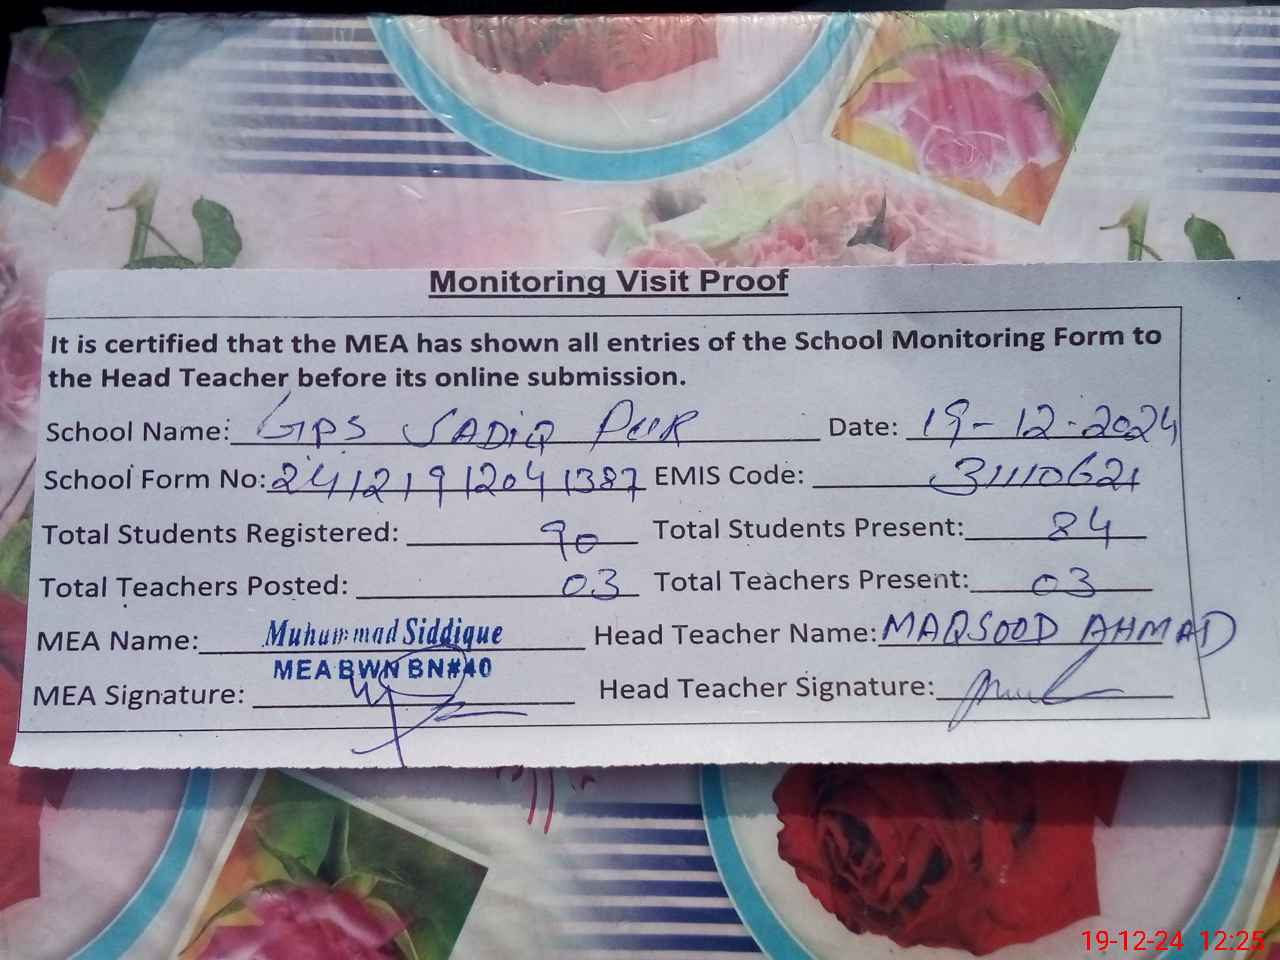 Monitoring Visit Proof
It is certified that the MEA has shown all entries of the School Monitoring Form to
the Head Teacher before its online submission.
School Name: GPS SADIQ PUR Date: 19-12-2024
School Form No: 241219 12041387 EMIS Code: 31110621
Total Students Registered: 90 Total Students Present: 84
Total Teachers Posted: 03 Total Teachers Present: 03
MEA Name: Muhammad Siddique Head Teacher Name: MAQSOOD AHMAD
MEA BWN BN#40
MEA Signature: Head Teacher Signature:
19-12-24 12:25